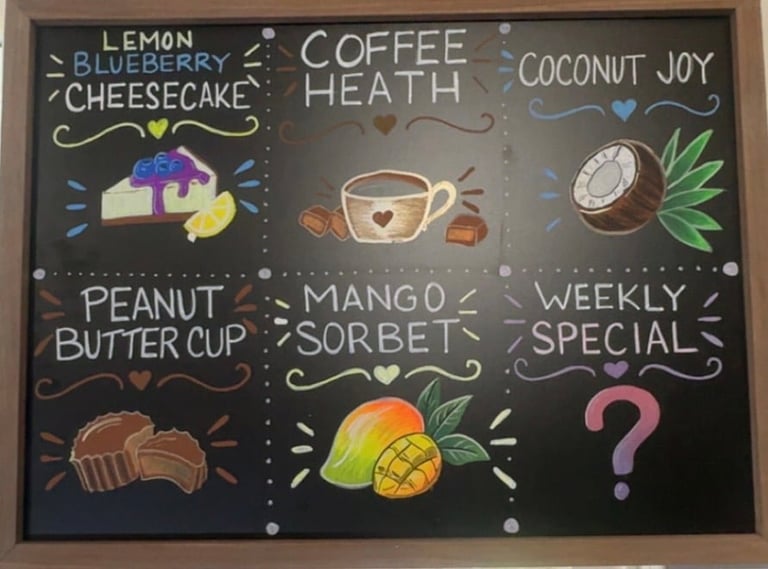 LEMON
BLUEBERRY
CHEESECAKE
COFFEE
HEATH
COCONUT JOY
PEANUT
BUTTER CUP
MANGO
SORBET
WEEKLY
SPECIAL
?